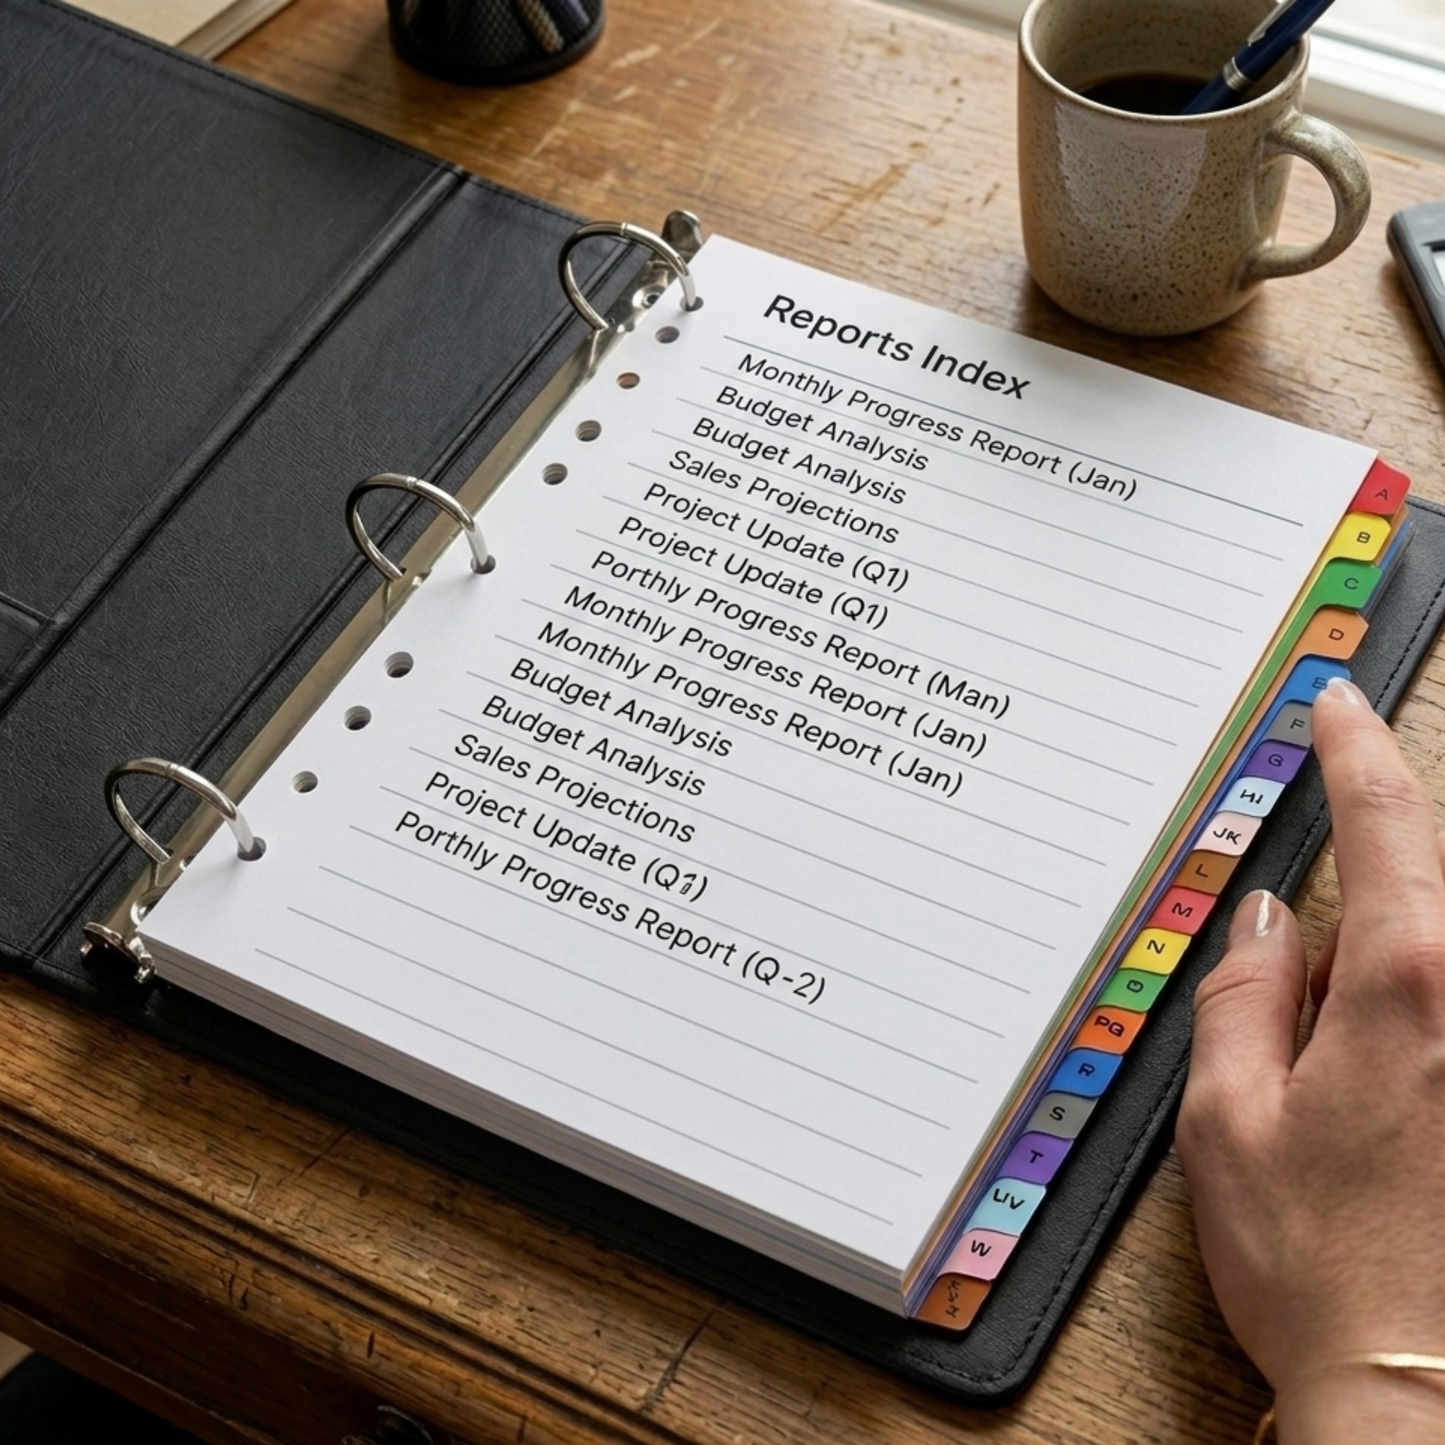 Reports Index
Monthly Progress Report (Jan)
Budget Analysis
Budget Analysis
Sales Projections
Project Update (Q1)
Project Update (Q1)
Porthly Progress Report (Man)
Monthly Progress Report (Jan)
Monthly Progress Report (Jan)
Budget Analysis
Budget Analysis
Sales Projections
Project Update
Porthly Progress Report (Q-2)
A
B
C
D
F
G
HI
JK
L
M
N
PQ
R
S
T
UV
W